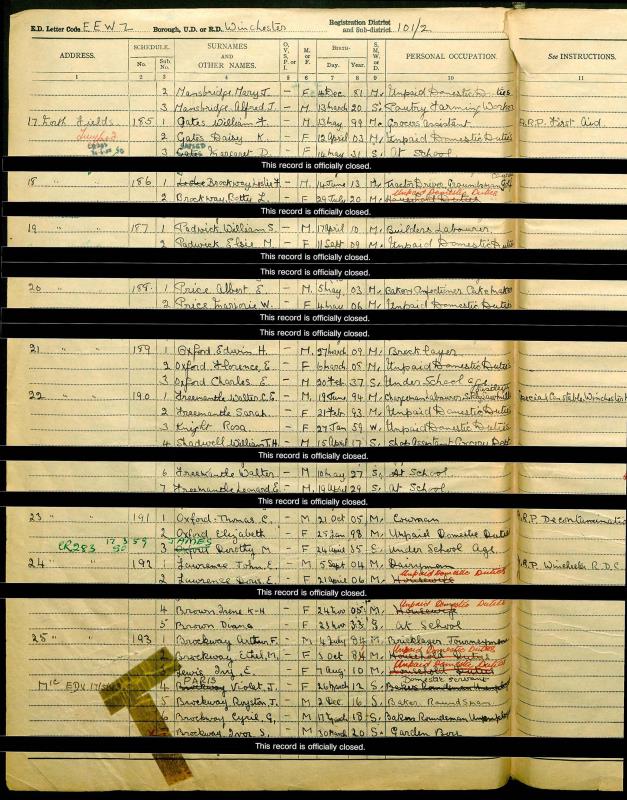 E.D. Letter Code EEWZ Borough, U.D. or R.D. Winchester Registration District and Sub-district 101/2
ADDRESS. SCHEDULE. No. Sub. No. SURNAMES AND OTHER NAMES. O. V. S. P. or I. M. or F. BIRTH— Day. Year. S. M. W. or D. PERSONAL OCCUPATION. See INSTRUCTIONS.
1 2 3 4 5 6 7 8 9 10 11
2 Mansbridge Mary J. – F 4 Dec 81 M. Unpaid Domestic Duties
3 Mansbridge Alfred J. – M 13 March 20 S. Poultry Farming Worker
17 North Fields 185 1 Gates William F. – M. 13 May 99 M. Grocers Assistant A.R.P. First Aid
Twyford
2 Gates Daisy K. – F 12 April 03 M. Unpaid Domestic Duties
3 Gates Margaret D. – F 14 May 31 S. At School
This record is officially closed.
18 " " 186 1 Brockway Leslie F. – M. 14 June 13 M. Tractor Driver, Groundsman
Unpaid Domestic Duties
2 Brockway, Betty L. – F 29 July 20 M. Household Duties
This record is officially closed.
19 " " 187 1 Padwick, William S. – M. 17 April 10 M. Builders Labourer
2 Padwick Elsie M. – F 11 Sept 09 M. Unpaid Domestic Duties
This record is officially closed.
This record is officially closed.
20 " " 188 1 Price Albert E. – M. 5 May 03 M. Baker Confectioner Cake maker
2 Price Marjorie W. – F 4 May 06 M. Unpaid Domestic Duties
This record is officially closed.
This record is officially closed.
21 " " 189 1 Oxford Edwin H. – M. 27 March 09 M. Bricklayer
2 Oxford Florence, E. – F 6 March 08 M. Unpaid Domestic Duties
3 Oxford Charles E. – M 20 Feb 37 S. Under School age
22 " " 190 1 Freemantle Walter C.E. – M. 19 June 94 M. Labourer Special Constable, Winchester
2 Freemantle Sarah. – F 21 Feb 93 M. Unpaid Domestic Duties
3 Knight Rosa. – F 27 Jan 59 W. Unpaid Domestic Duties
4 Shadwell William T.H. – M 15 April 17 S. Shop Assistant Grocery Dept
This record is officially closed.
6 Freemantle Walter – M 10 May 27 S. At School
7 Freemantle Leonard E. – M. 19 April 29 S. At School
This record is officially closed.
23 " " 191 1 Oxford. Thomas C. – M 21 Oct 05 M. Cowman A.R.P. Decontamination
2 Oxford Elizabeth – F 25 Jan 98 M. Unpaid Domestic Duties
CR283 17.3.59 JAMES
3 Oxford Dorothy M – F 24 April 35 S. Under School Age.
24 " " 192 1 Lawrence John, E. – M 5 Sept 04 M. Dairyman A.R.P. Winchester R.D.C.
Unpaid Domestic Duties
2 Lawrence Doris, E. – F 21 April 06 M. Housewife
This record is officially closed.
Unpaid Domestic Duties
4 Brown, Irene K-H – F 24 Nov 05 M. Housewife
5 Brown Diana – F 28 Nov 33 S. At School
25 " " 193 1 Brockway Arthur F. – M 4 July 84 M. Bricklayer Journeyman
Unpaid Domestic Duties
2 Brockway, Ethel, M. – F 3 Oct 84 M. Household Duties
Unpaid Domestic Duties
3 Lewis Ivy, E. – F 7 Aug. 10 M. Household Duties
PARIS Domestic servant
4 Brockway Violet, J. – F 26 March 12 S. Bakers Roundsman
5 Brockway Royston, J. – M 2 Dec. 16 S. Baker Roundsman
6 Brockway Cyril, G. – M 17 March 18 S. Bakers Roundsman
Brockway Ivor S. – M 30 March 20 S. Garden Boy
This record is officially closed.